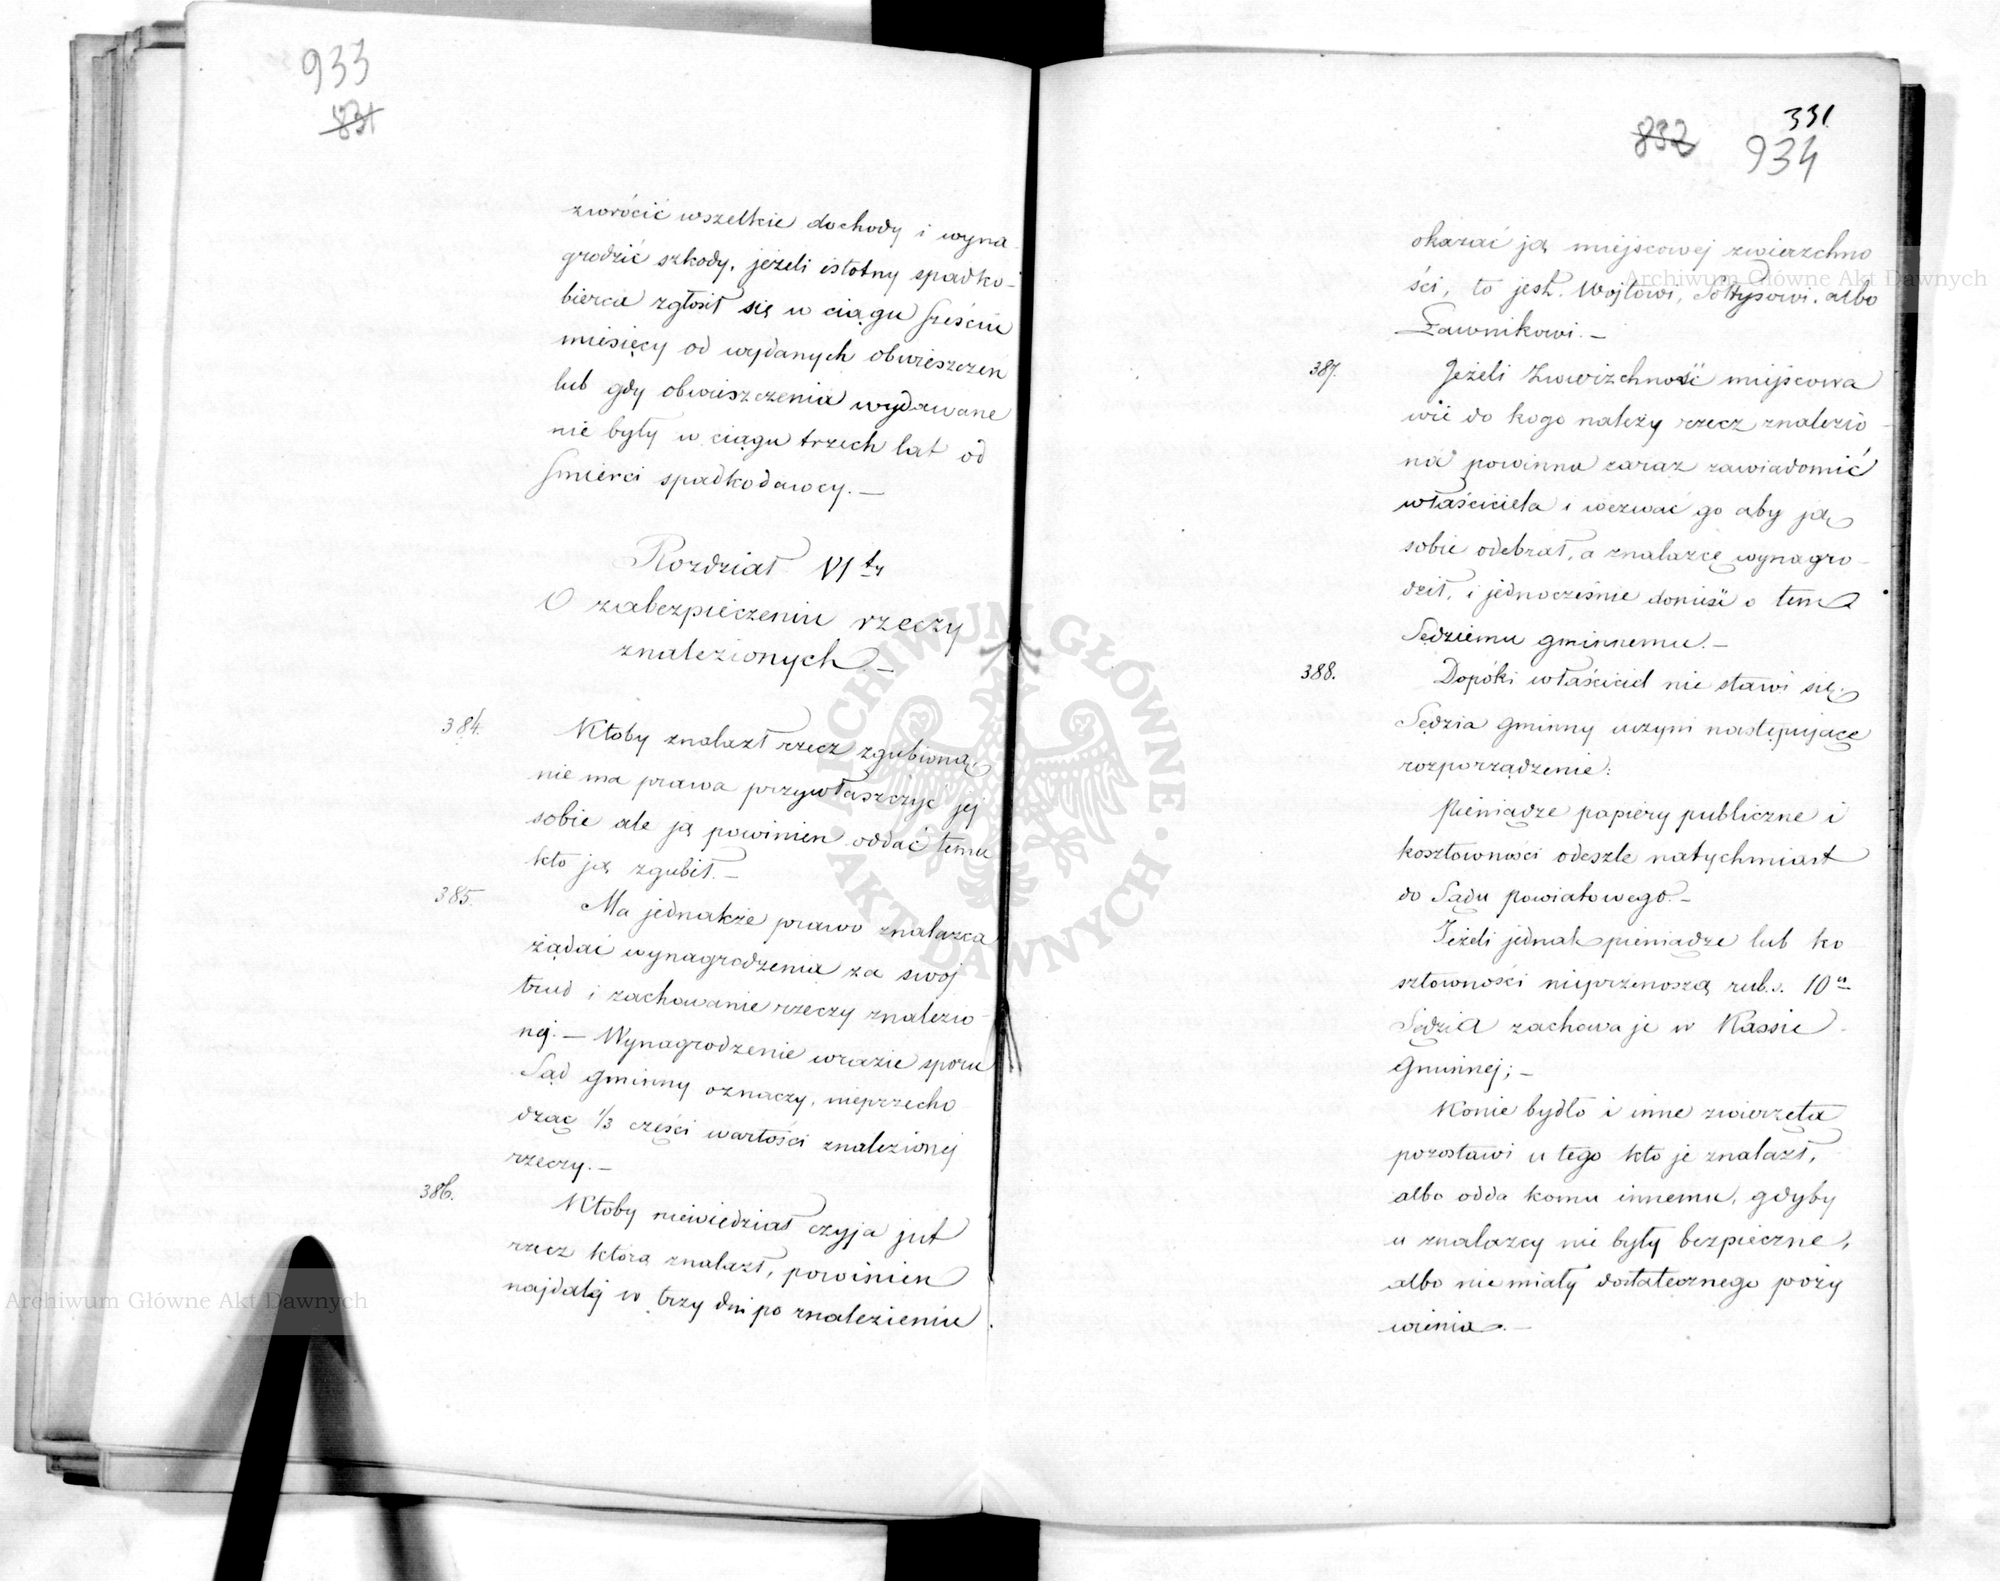 933
831
zwrócić wszelkie dochody i wyna
grodzić szkody, jeżeli istotny spadko-
bierca zgłosił się w ciągu sześciu
miesięcy od wydanych obwieszczeń
lub gdy obwieszczenia wydawane
nie były w ciągu trzech lat od
śmierci spadkodawcy. —
Rozdział VI ty
O zabezpieczeniu rzeczy
znalezionych —
384. Ktoby znalazł rzecz zgubioną,
nie ma prawa przywłaszczyć jej
sobie ale ją powinien oddać temu
kto ją zgubił. —
385. Ma jednakże prawo znalazca
żądać wynagrodzenia za swój
trud i zachowanie rzeczy znalezio
nej. — Wynagrodzenie wrazie sporu
Sąd gminny oznaczy, nieprzecho
dząc 1/3 części wartości znalezionej
rzeczy. —
386. Ktoby niewiedział czyja jest
rzecz którą znalazł, powinien
najdalej w trzy dni po znalezieniu
331.
832 934
okazać ją miejscowej zwierzchno
ści, to jest. Wójtowi, Sołtysowi, albo
Ławnikowi. —
387. Jeżeli Zwierzchność miejscowa
wie do kogo należy rzecz znalezio
na powinna zaraz zawiadomić
właściciela i wezwać go aby ją
sobie odebrał, a znalazcę wynagro-
dził, i jednocześnie donieść o tem
Sędziemu gminnemu. —
388. Dopóki właściciel nie stawi się,
Sędzia gminny uczyni następujące
rozporządzenie:
Pieniądze papiery publiczne i
kosztowności odeszle natychmiast
do Sądu Powiatowego. —
Jeżeli jednak pieniądze lub ko
sztowności nieprzenoszą rub. s. 10
Sędzia zachowa je w Kassie
Gminnej; —
Konie bydło i inne zwierzęta
pozostawi u tego kto je znalazł,
albo odda komu innemu, gdyby
u znalazcy nie były bezpieczne,
albo nie miały dostatecznego poży
wienia. —
Archiwum Główne Akt Dawnych
Archiwum Główne Akt Dawnych
ARCHIWUM GŁÓWNE · AKT DAWNYCH ·